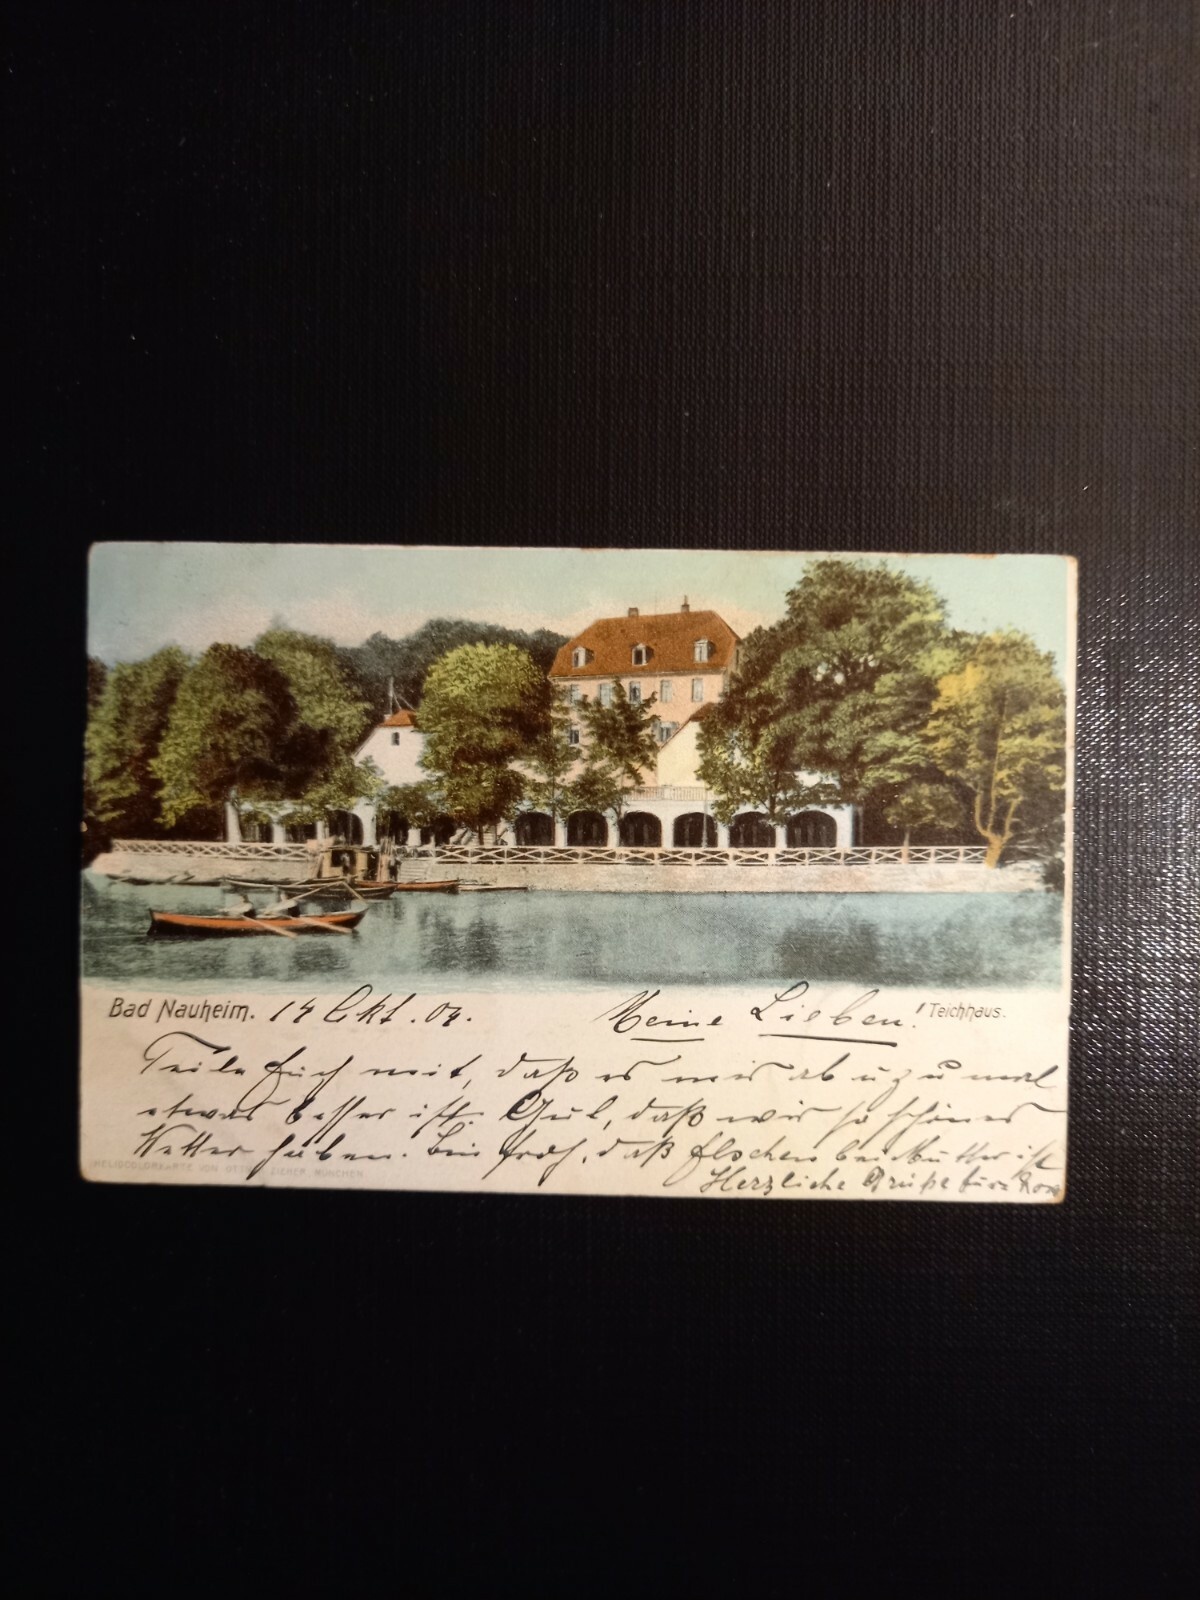 Bad Nauheim. 14 Okt. 04. Meine Lieben! Teichhaus.
Teile Euch mit, daß es mir ab u. zu mal
etwas besser ist. Gut, daß wir so schönes
Wetter haben. Bin froh, daß bei Mutter ist
HELIOCOLORKARTE VON OTTMAR ZIEHER, MÜNCHEN
Herzliche Grüße